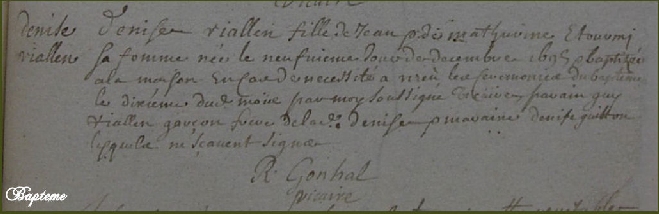 vicaire
denise Denise viallen fille de Jean p de mathurine
viallen sa femme née le neufuieme Jour de decembre 1695 baptisée
a la maison En cas de necessité a receu les ceremonies du bapteme
le dixieme dud mois par moy soussigne vicaire parain guy
viallen garcon frere de lad. denise maraine denise guitton
lesquels ne scauent signer
R Gonhal
vicaire
Bapteme